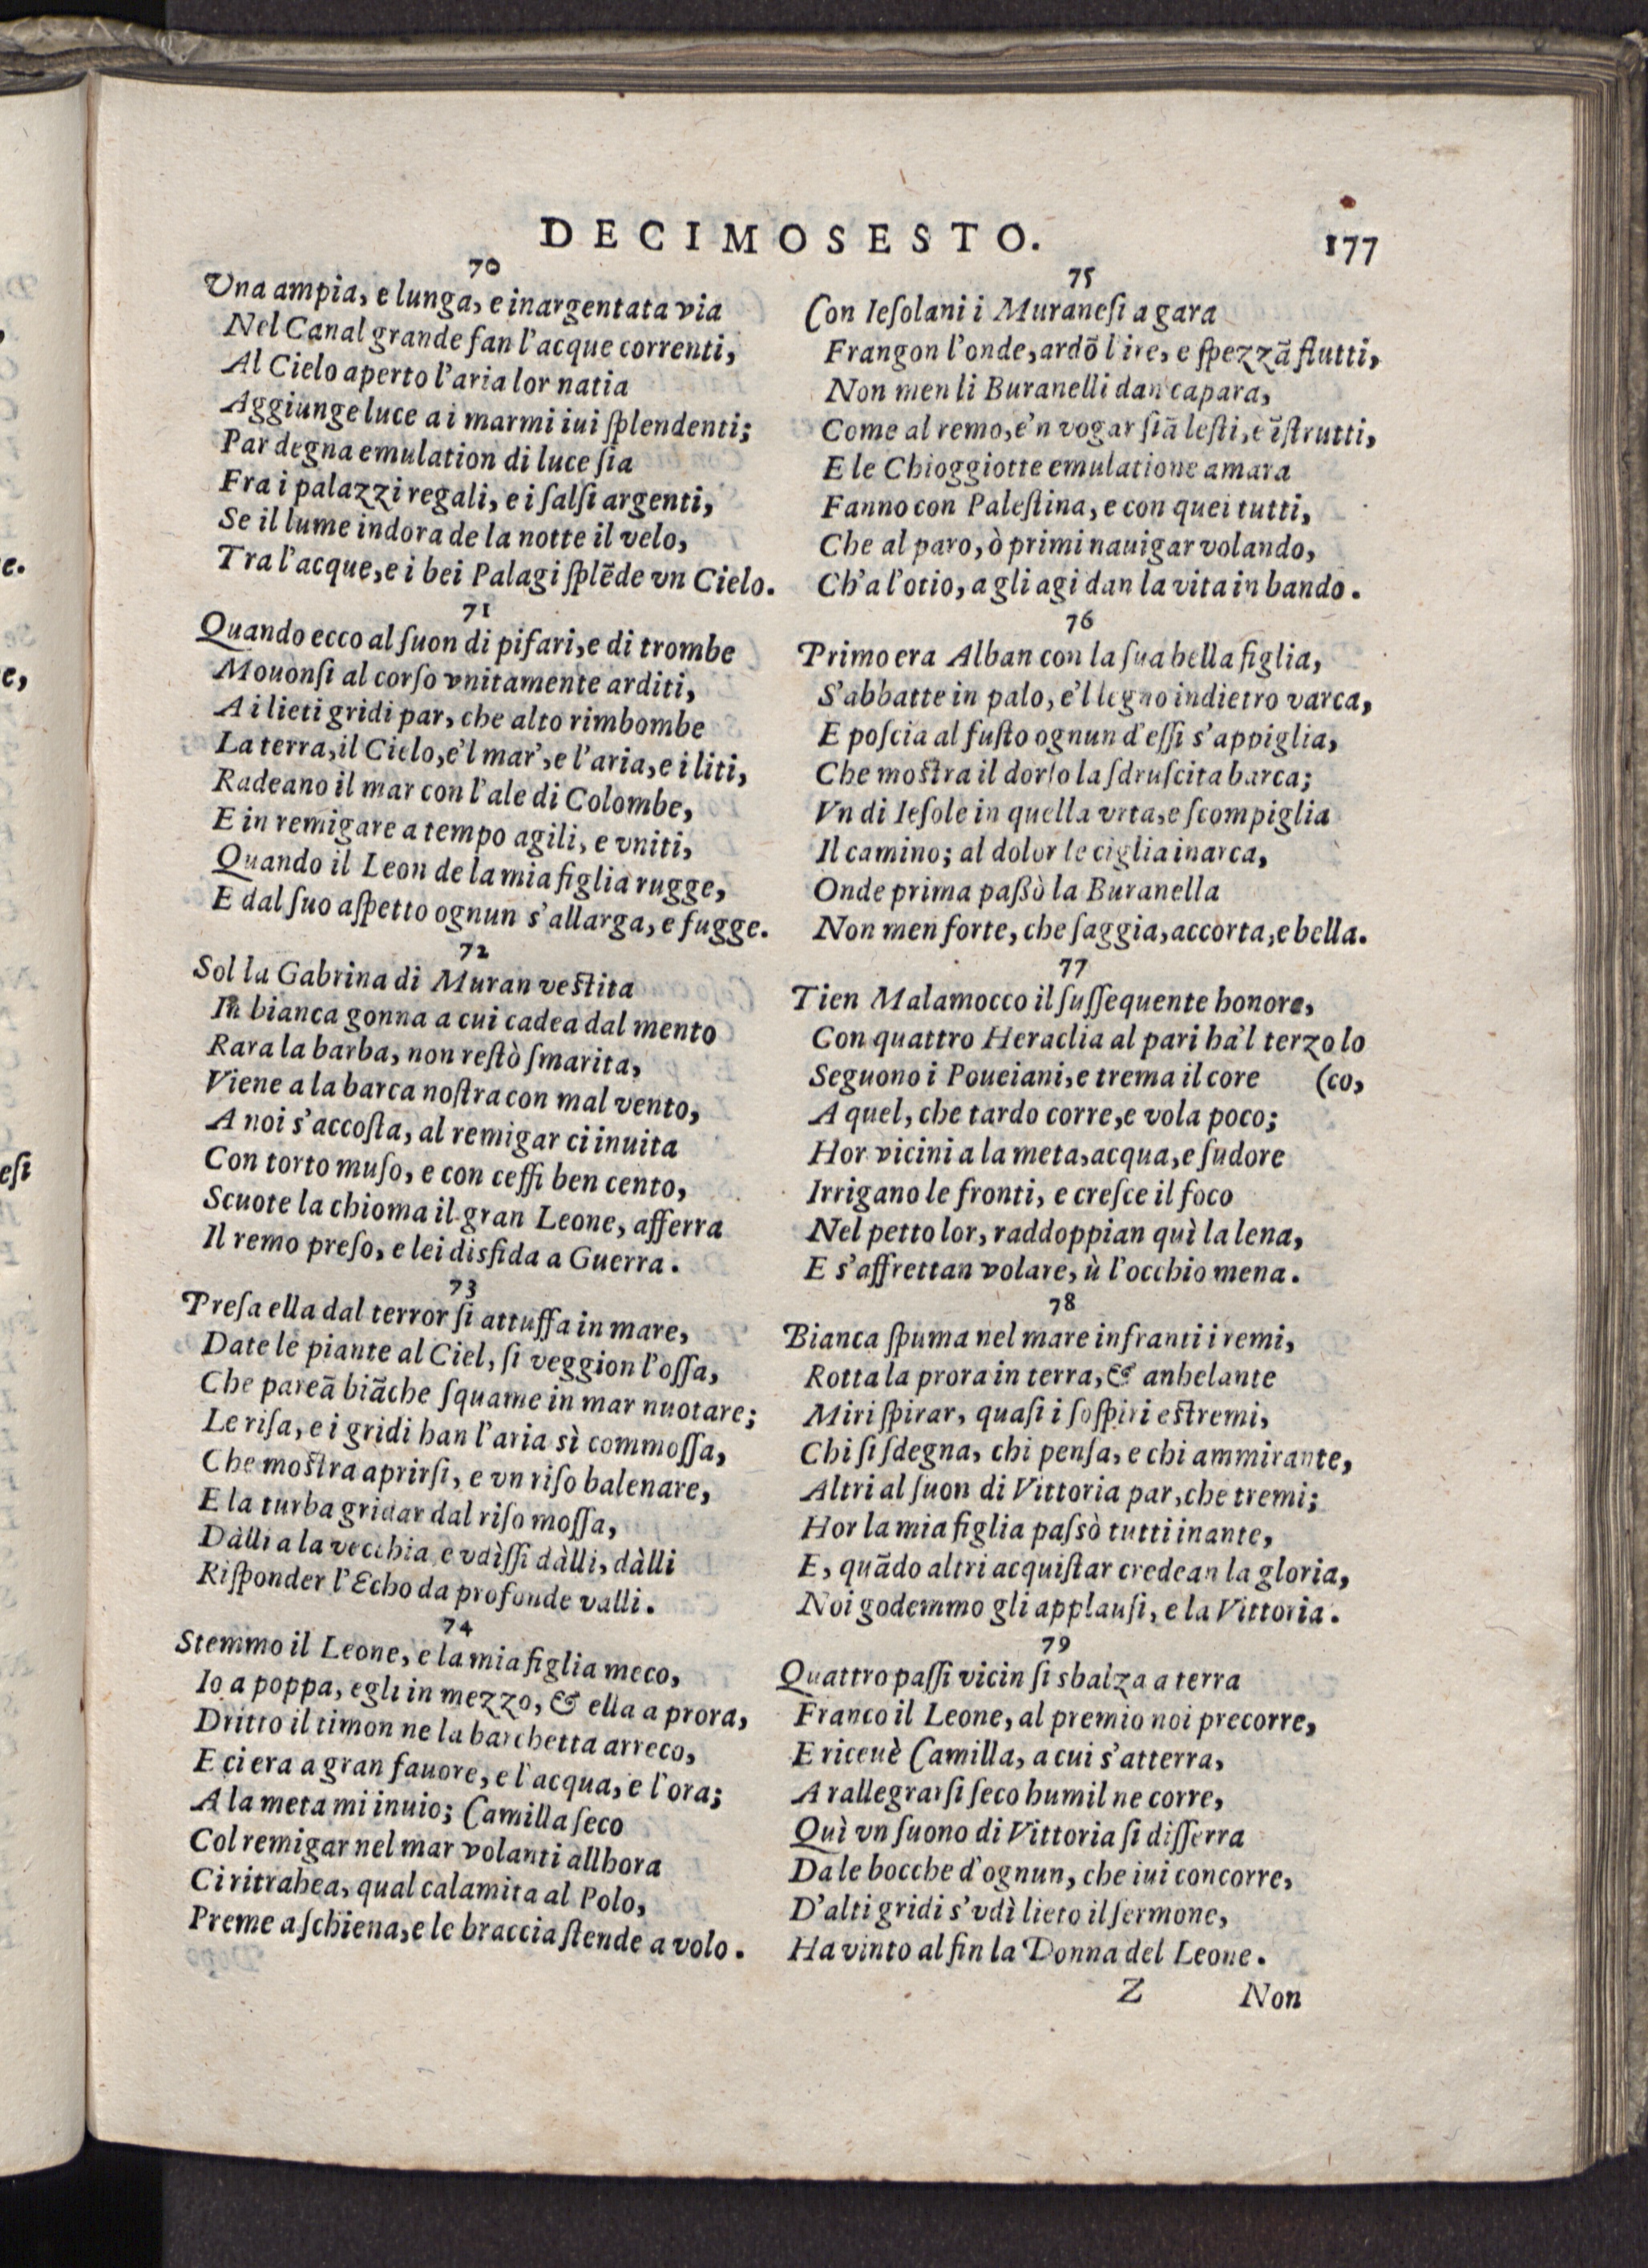 DECIMOSESTO. 177
70
Vna ampia, e lunga, e inargentata via
Nel Canal grande fan l'acque correnti,
Al Cielo aperto l'aria lor natia
Aggiunge luce a i marmi iui ſplendenti;
Par degna emulation di luce ſia
Fra i palazzi regali, e i ſalſi argenti,
Se il lume indora de la notte il velo,
Tra l'acque, e i bei Palagi ſplēde vn Cielo.
71
Quando ecco al ſuon di pifari, e di trombe
Mouonſi al corſo vnitamente arditi,
A i lieti gridi par, che alto rimbombe
La terra, il Cielo, e'l mar', e l'aria, e i liti,
Radeano il mar con l'ale di Colombe,
E in remigare a tempo agili, e vniti,
Quando il Leon de la mia figlia rugge,
E dal ſuo aſpetto ognun s'allarga, e fugge.
72
Sol la Gabrina di Muran veſtita
In bianca gonna a cui cadea dal mento
Rara la barba, non reſtò ſmarita,
Viene a la barca noſtra con mal vento,
A noi s'accoſta, al remigar ci inuita
Con torto muſo, e con ceffi ben cento,
Scuote la chioma il gran Leone, afferra
Il remo preſo, e lei disfida a Guerra.
73
Preſa ella dal terror ſi attuffa in mare,
Date le piante al Ciel, ſi veggion l'oſſa,
Che pareā biāche ſquame in mar nuotare;
Le riſa, e i gridi han l'aria sì commoſſa,
Che moſtra aprirſi, e vn riſo balenare,
E la turba gridar dal riſo moſſa,
Dàlli a la vecchia, e vdìſſi dàlli, dàlli
Riſponder l'Echo da profonde valli.
74
Stemmo il Leone, e la mia figlia meco,
Io a poppa, egli in mezzo, & ella a prora,
Dritto il timon ne la barchetta arreco,
E ci era a gran fauore, e l'acqua, e l'ora;
A la meta mi inuio; Camilla ſeco
Col remigar nel mar volanti allhora
Ci ritrahea, qual calamita al Polo,
Preme a ſchiena, e le braccia ſtende a volo.
75
Con Ieſolani i Muraneſi a gara
Frangon l'onde, ardō l'ire, e ſpezzā flutti,
Non men li Buranelli dan capara,
Come al remo, e'n vogar ſiā leſti, e īſtrutti,
E le Chioggiotte emulatione amara
Fanno con Paleſtina, e con quei tutti,
Che al paro, ò primi nauigar volando,
Ch'a l'otio, a gli agi dan la vita in bando.
76
Primo era Alban con la ſua bella figlia,
S'abbatte in palo, e'l legno indietro varca,
E poſcia al fuſto ognun d'eſſi s'appiglia,
Che moſtra il dorſo la ſdruſcita barca;
Vn di Ieſole in quella vrta, e ſcompiglia
Il camino; al dolor le ciglia inarca,
Onde prima paßò la Buranella
Non men forte, che ſaggia, accorta, e bella.
77
Tien Malamocco il ſuſſequente honore,
Con quattro Heraclia al pari ha'l terzo lo
Seguono i Poueiani, e trema il core (co,
A quel, che tardo corre, e vola poco;
Hor vicini a la meta, acqua, e ſudore
Irrigano le fronti, e creſce il foco
Nel petto lor, raddoppian quì la lena,
E s'affrettan volare, ù l'occhio mena.
78
Bianca ſpuma nel mare infranti i remi,
Rotta la prora in terra, & anhelante
Miri ſpirar, quaſi i ſoſpiri eſtremi,
Chi ſi ſdegna, chi penſa, e chi ammirante,
Altri al ſuon di Vittoria par, che tremi;
Hor la mia figlia paſsò tutti inante,
E, quādo altri acquiſtar credean la gloria,
Noi godemmo gli applauſi, e la Vittoria.
79
Quattro paſſi vicin ſi sbalza a terra
Franco il Leone, al premio noi precorre,
E riceuè Camilla, a cui s'atterra,
A rallegrarſi ſeco humil ne corre,
Quì vn ſuono di Vittoria ſi diſſerra
Da le bocche d'ognun, che iui concorre,
D'alti gridi s'vdì lieto il ſermone,
Ha vinto al fin la Donna del Leone.
Z Non